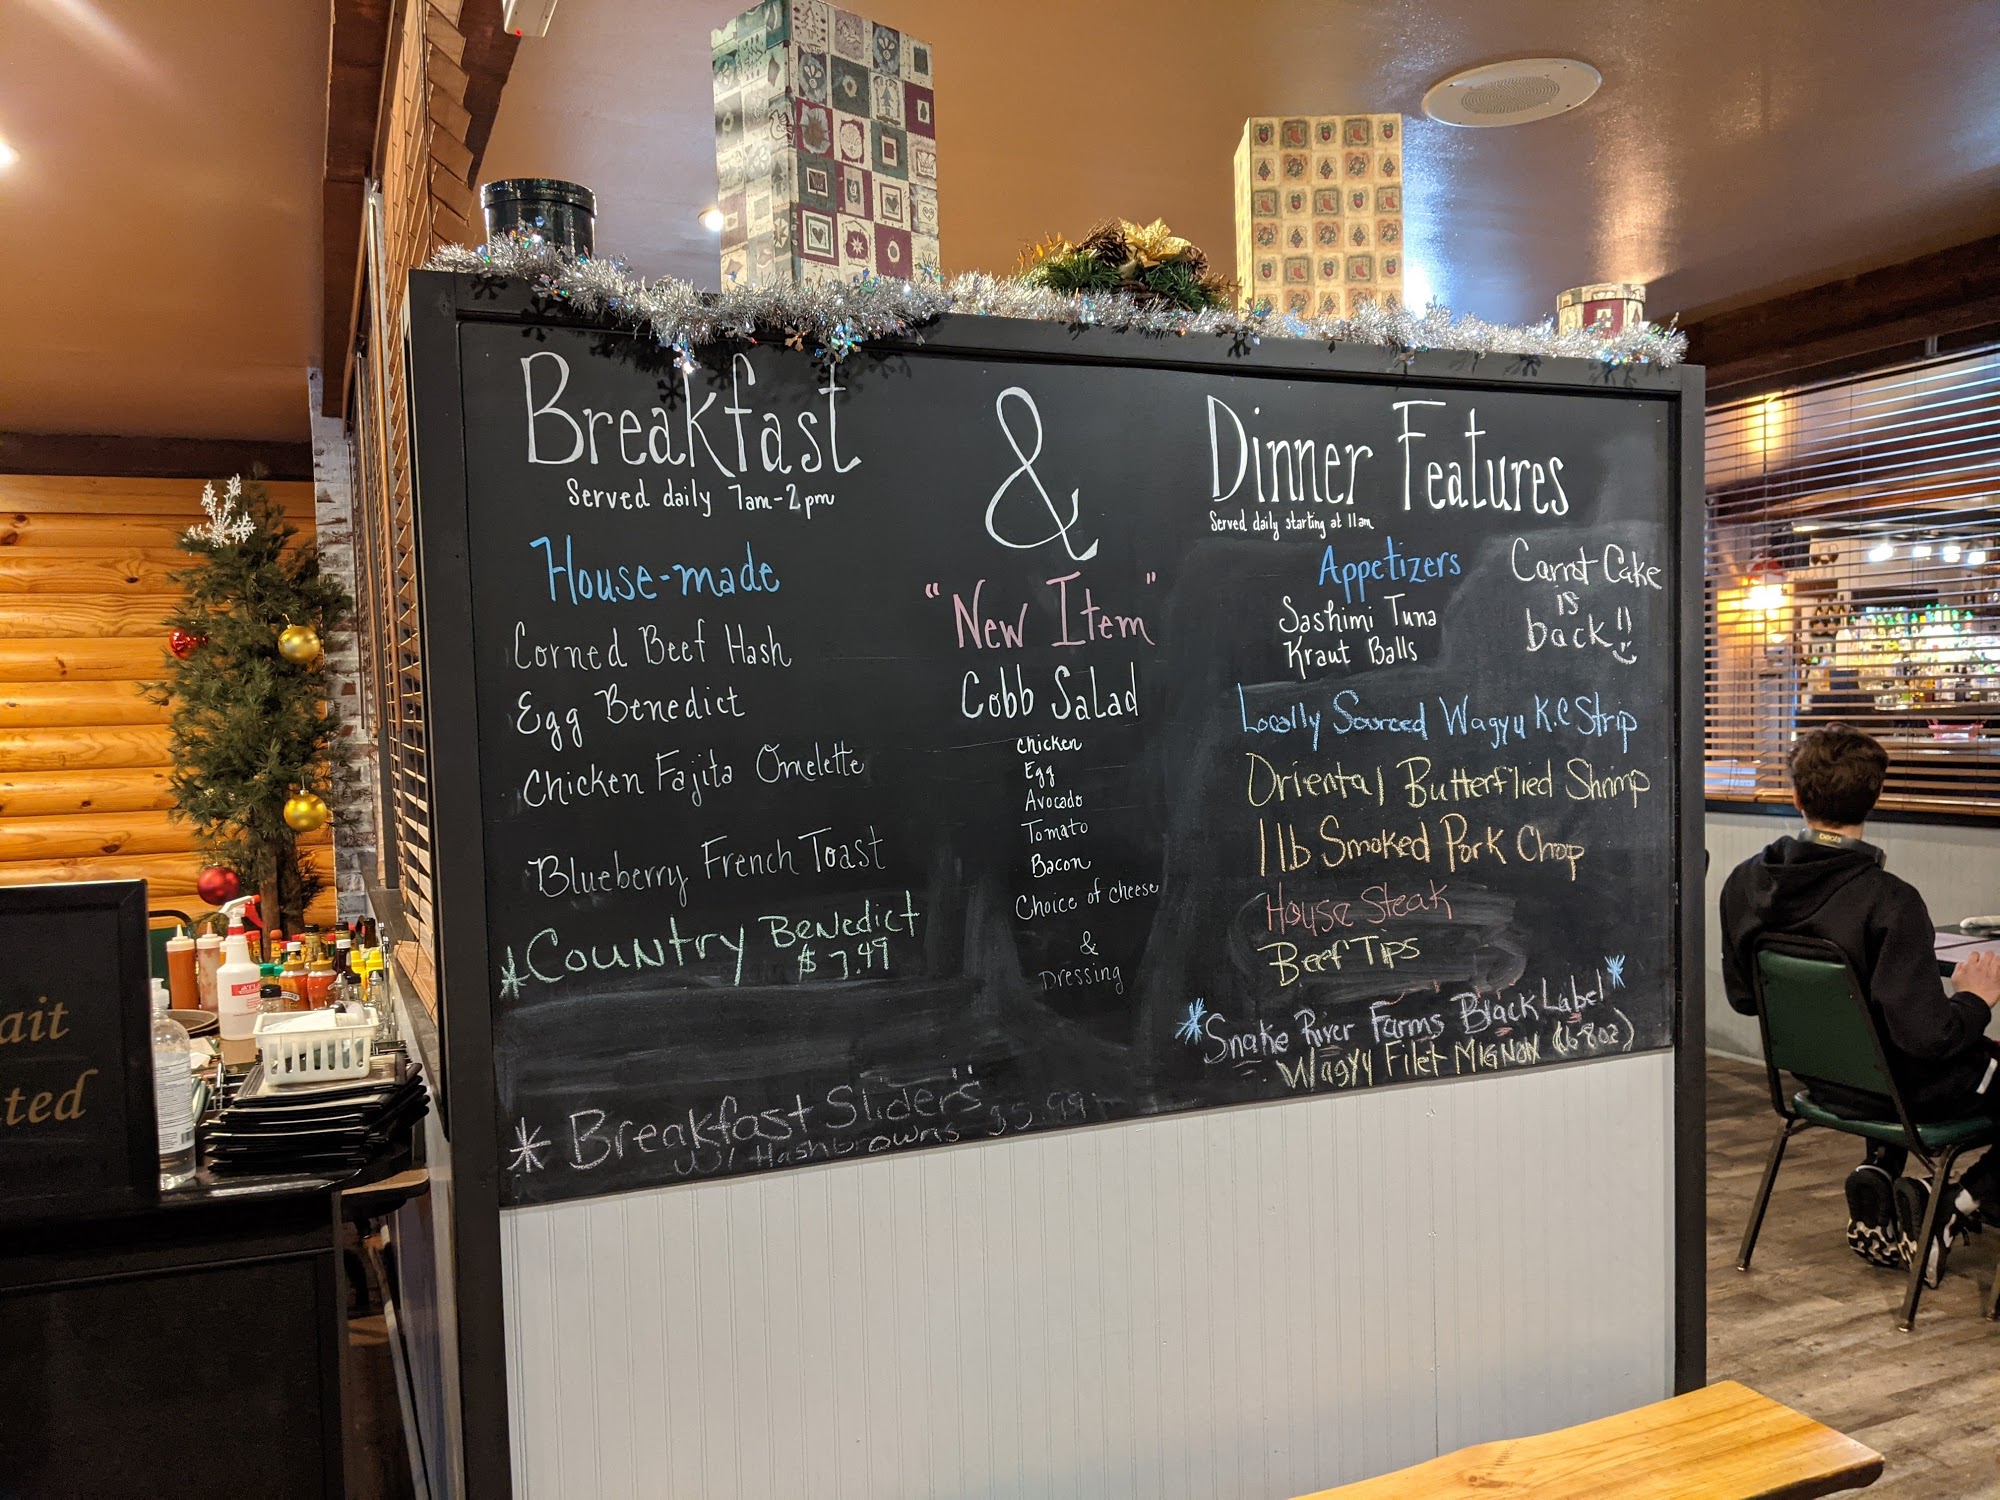 Breakfast
Served daily 7am-2pm
House-made
Corned Beef Hash
Egg Benedict
Chicken Fajita Omelette
Blueberry French Toast
*Country Benedict
$7.49
* Breakfast Sliders
w/ Hashbrowns $5.99
&
"New Item"
Cobb Salad
Chicken
Egg
Avocado
Tomato
Bacon
Choice of cheese
&
Dressing
Dinner Features
Served daily starting at 11am
Appetizers
Sashimi Tuna
Kraut Balls
Carrot Cake
is
back!!
Locally Sourced Wagyu K.C Strip
Oriental Butterflied Shrimp
1lb Smoked Pork Chop
House Steak
Beef Tips
*Snake River Farms Black Label*
Wagyu Filet Mignon (6-8oz)
ait
ted
beats